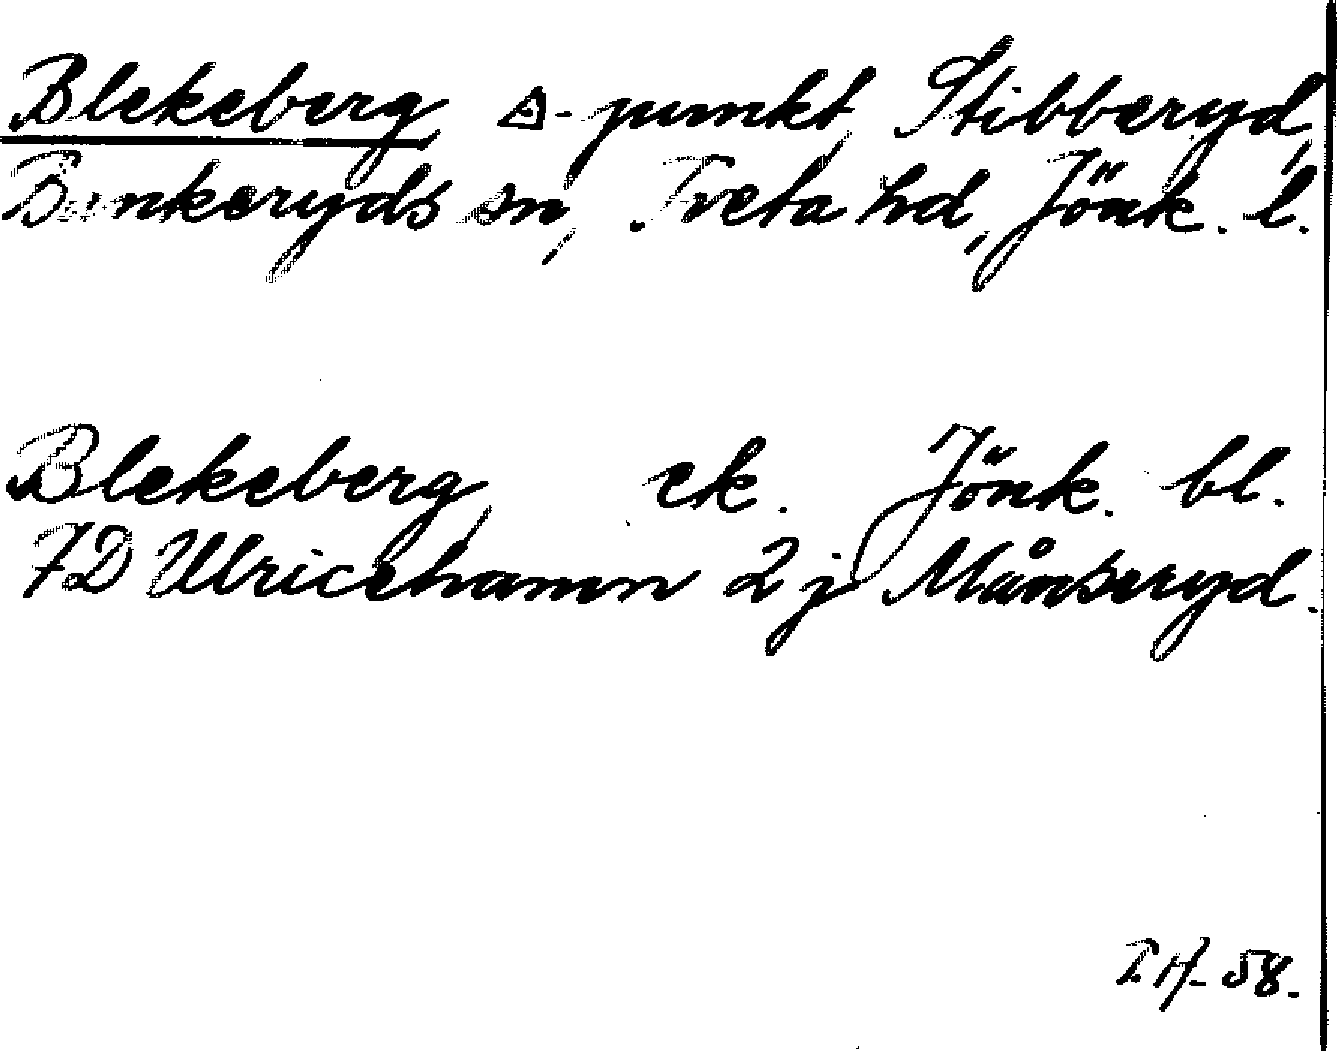 Blekeberg, △-punkt, Stibberyd,
Bankeryds sn, Tveta hd, Jönk. l.
Blekeberg, ek. Jönk. bl.
7D Ulricehamn 2 j Månseryd.
I.H-58.